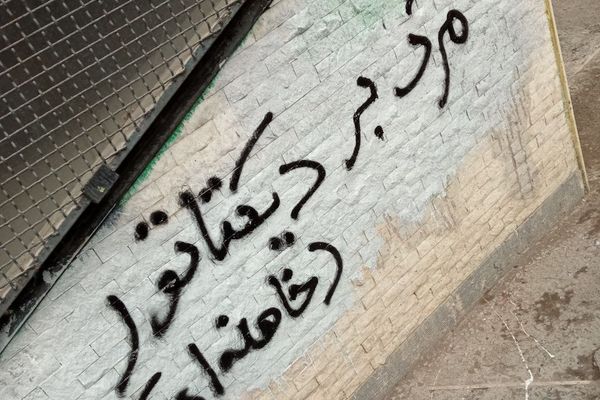 مرگ بر دیکتاتور
(خامنه‌ای